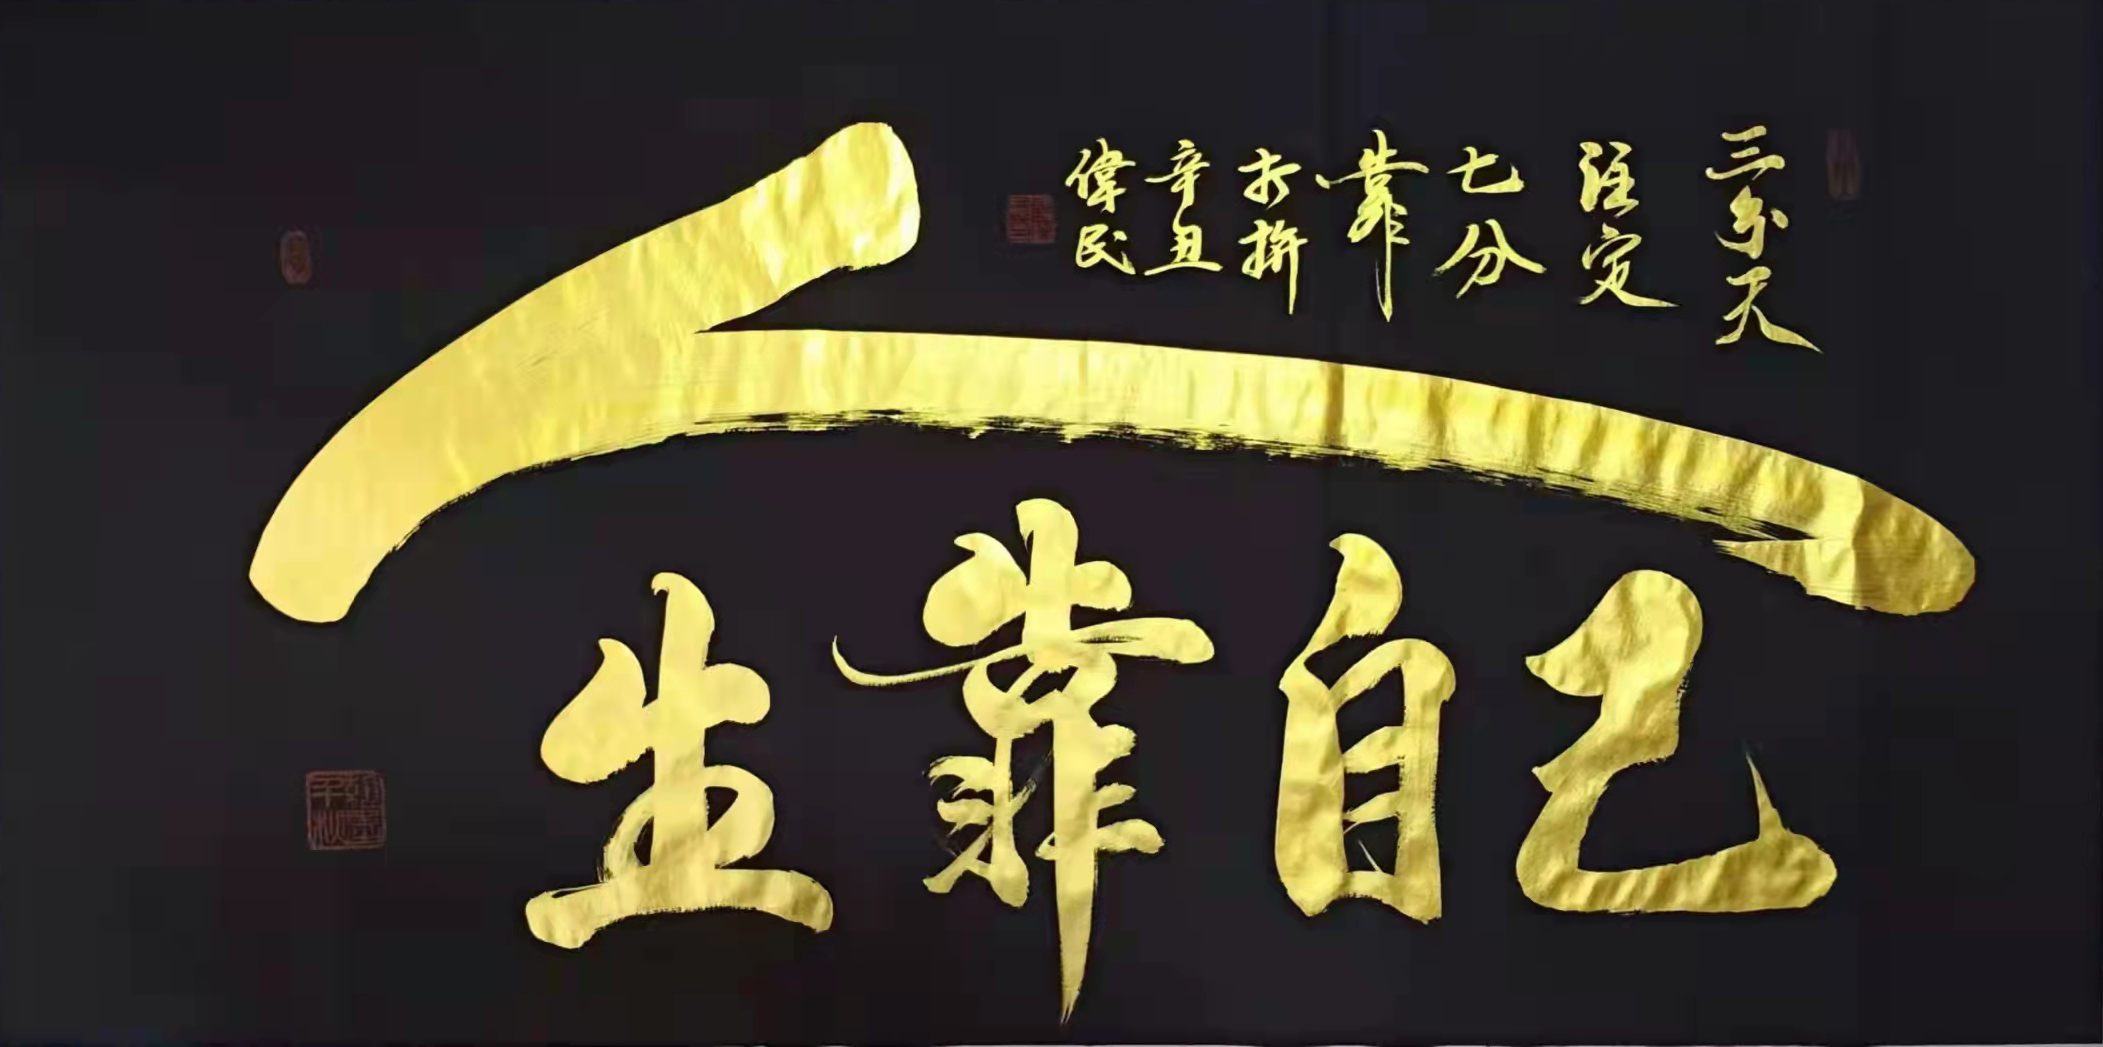 人生靠自己
三分天
注定
七分
靠
打拚
辛丑
偉民